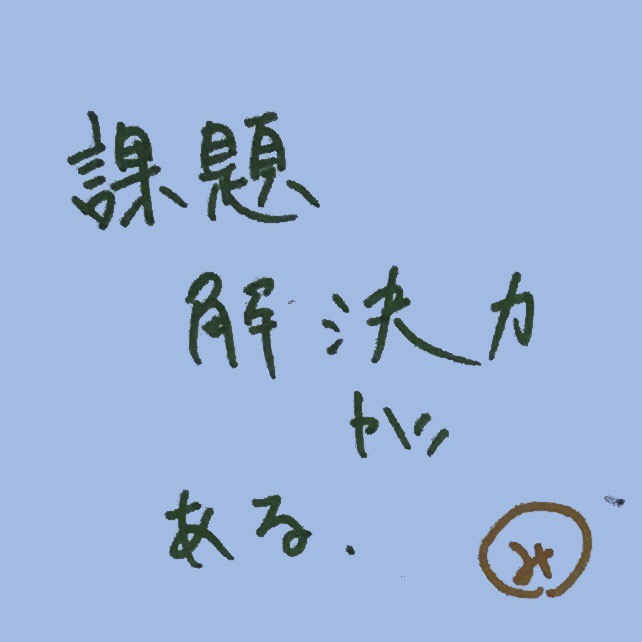 課題
解決力
が
ある.